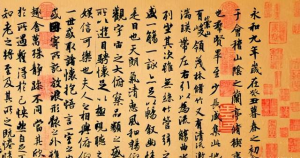 永和九年歲在癸丑暮春之初
于會稽山陰之蘭亭脩稧
也羣賢畢至少長咸集此
有崇山峻領茂林脩竹又有清流
湍暎帶左右引以爲流觴曲
列坐其次雖無絲竹管弦
盛一觴一詠亦足以暢敘幽情
是日也天朗氣清惠風和暢
觀宇宙之大俯察品類之盛
所以遊目騁懷足以極視聽
娛信可樂也夫人之相與俯仰
一世或取諸懷抱悟言一室之
或因寄所託放浪形骸之外
趣舍萬殊靜躁不同當其欣
於所遇蹔得於己怏然自足
知老之將至及其所之既惓情